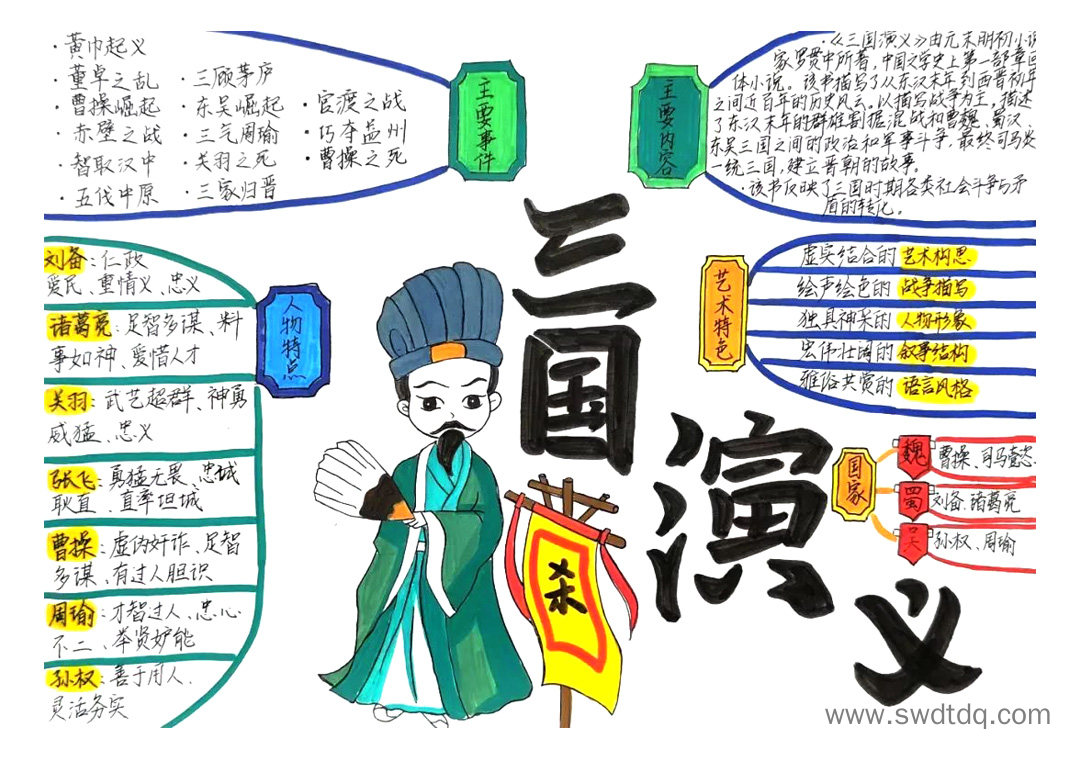 主要事件
· 黄巾起义
· 董卓之乱
· 曹操崛起
· 赤壁之战
· 智取汉中
· 五伐中原
· 三顾茅庐
· 东吴崛起
· 三气周瑜
· 关羽之死
· 三家归晋
· 官渡之战
· 巧夺益州
· 曹操之死
主要内容
·《三国演义》由元末明初小说
家罗贯中所著，中国文学史上第一部章回
体小说。该书描写了从东汉末年到西晋初年
之间近百年的历史风云。以描写战争为主，描述
了东汉末年的群雄割据混战和曹魏、蜀汉、
东吴三国之间的政治和军事斗争，最终司马炎
一统三国，建立晋朝的故事。
·该书反映了三国时期各类社会斗争与矛
盾的转化。
人物特点
刘备：仁政
爱民、重情义、忠义
诸葛亮：足智多谋、料
事如神、爱惜人才
关羽：武艺超群、神勇
威猛、忠义
张飞：勇猛无畏、忠诚
耿直、直率坦诚
曹操：虚伪奸诈、足智
多谋、有过人胆识
周瑜：才智过人、忠心
不二、举贤妒能
孙权：善于用人、
灵活务实
艺术特色
虚实结合的艺术构思
绘声绘色的战争描写
独具神采的人物形象
宏伟壮阔的叙事结构
雅俗共赏的语言风格
国家
魏 曹操、司马懿次
蜀 刘备、诸葛亮
吴 孙权、周瑜
三国演义
杀
www.swdtdq.com